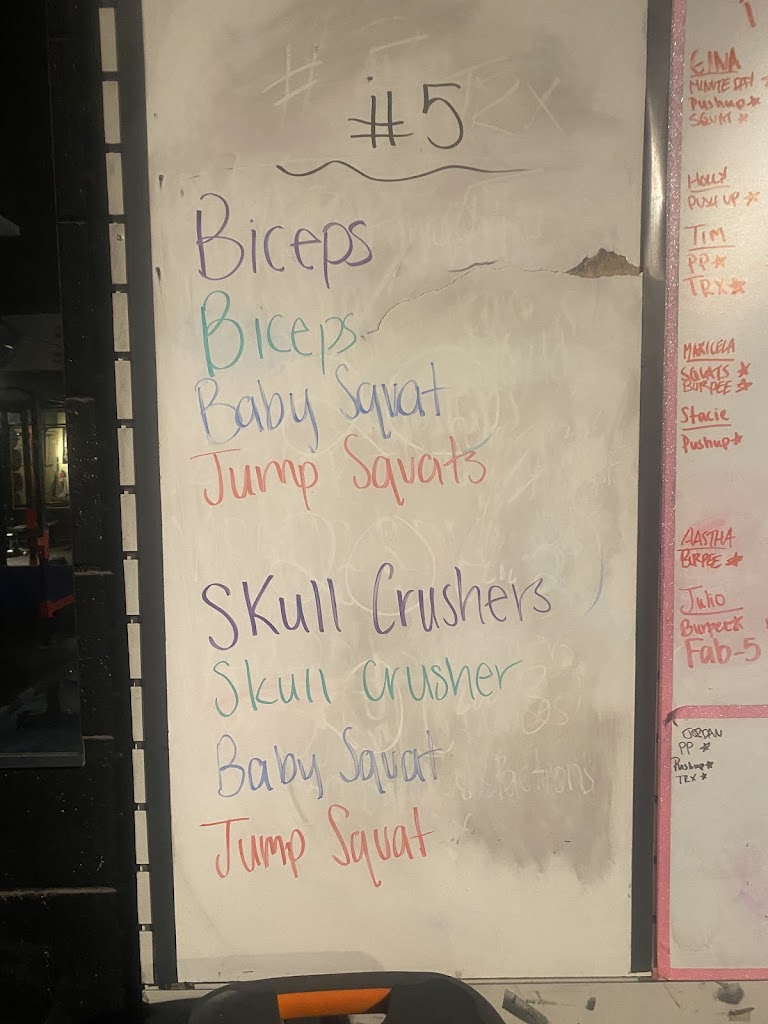 #5
Biceps
Biceps
Baby Squat
Jump Squats
Skull Crushers
Skull Crusher
Baby Squat
Jump Squat
GINA
MINUTE DAY
Pushup
SQUAT
Holly
PUSH UP
TIM
PP
TRX
MARICELA
SQUATS
BURPEE
Stacie
Pushup
AASTHA
BURPEE
Julio
Burpee
Fab-5
JORDAN
PP
Pushup
TRX